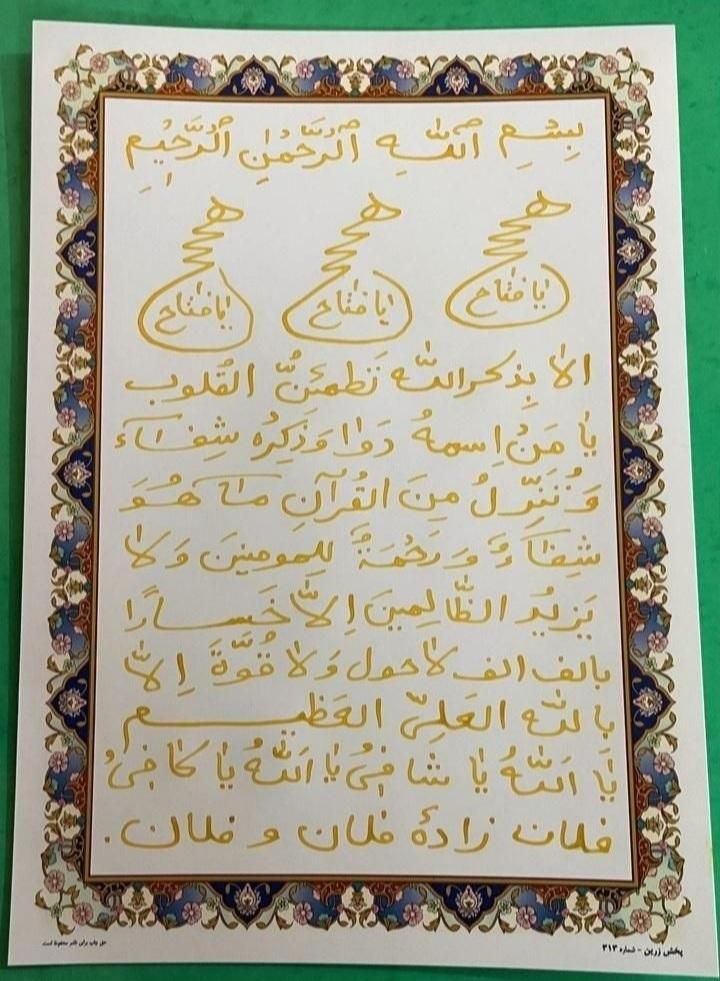 بِسْمِ اَللّٰهِ اَلرَّحْمٰنِ اَلرَّحيٖمِ
یا فتاح یا فتاح یا فتاح
الا بِذکرالله تَطمَئِنُّ القُلوب
یا مَنْ اِسمهُ دَوا وَ ذِکِرُه شِفٰاء
وَ نُنَزِّلُ مِنَ القُرآنِ مٰا هُوَ
شِفٰاءٌ وَ رَحْمَةٌ للمومنینَ وَ لا
یَزیدُ الظّالِمینَ اِلاَّ خَسارًا
بالف الف لاحول وَلا قُوَّةَ اِلاّ
بالله العَلِیّ العَظیم
یٰا اَللّٰهُ یا شافیُ یا اَللّٰهُ یا کافیُ
فلان زادهٔ فلان و فلان.
پخش زرین - شماره ۳۱۳
حق چاپ برای ناشر محفوظ است